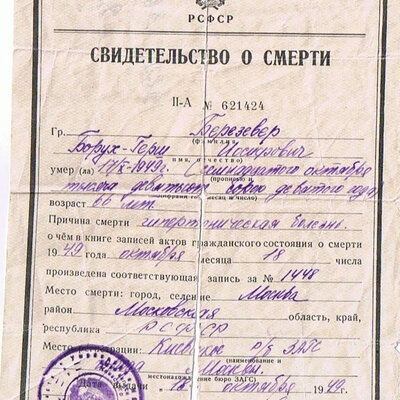 РСФСР
СВИДЕТЕЛЬСТВО О СМЕРТИ
II-А № 621424
Гр. Березевер
(фамилия)
Борух-Герш Иосифович
имя, отчество)
умер (ла) 17/X-1949г. Семнадцатого октября
(прописью и
тысяча девятьсот сорок девятого года
цифрами год, месяц и число)
возраст 66 лет.
Причина смерти гипертоническая болезнь.
о чём в книге записей актов гражданского состояния о смерти
1949 года октября месяца 18 числа
произведена соответствующая запись за № 1448
Место смерти: город, селение Москва
район Московская область, край,
республика РСФСР
Место регистрации: Киевское р/з ЗАГС
(наименование и
Москвы.
местонахождение бюро ЗАГС)
Дата выдачи 18 октября 1949г.